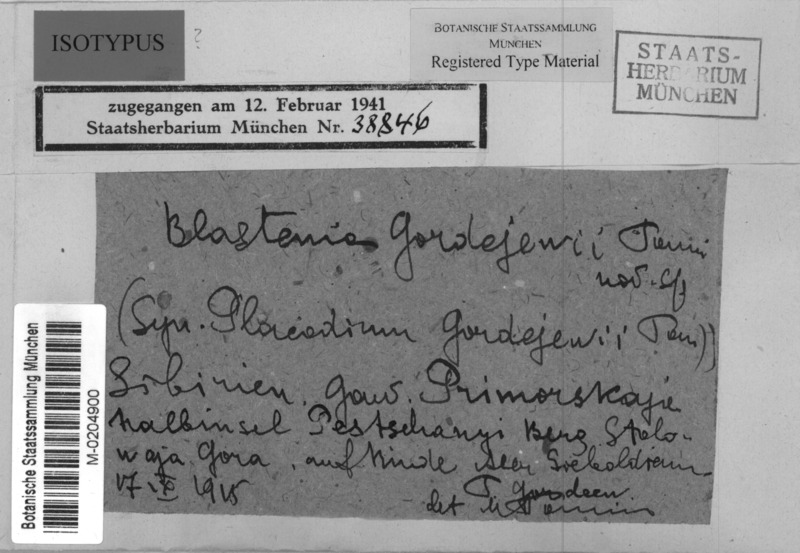 ISOTYPUS
?
BOTANISCHE STAATSSAMMLUNG
MÜNCHEN
Registered Type Material
STAATS-
HERBARIUM
MÜNCHEN
zugegangen am 12. Februar 1941
Staatsherbarium München Nr. 38846
Blastenia Gordejewii Tomin
nov. sp
(Syn. Placodium Gordejewii Tom))
Sibirien. Gouv. Primorskaje
Halbinsel Pestschanyi Berg Stolo-
waja Gora, auf Rinde Acer Sieboldian
17 IX 1915
T. Gordeev.
det M Tomin
Botanische Staatssammlung München
M-0204900